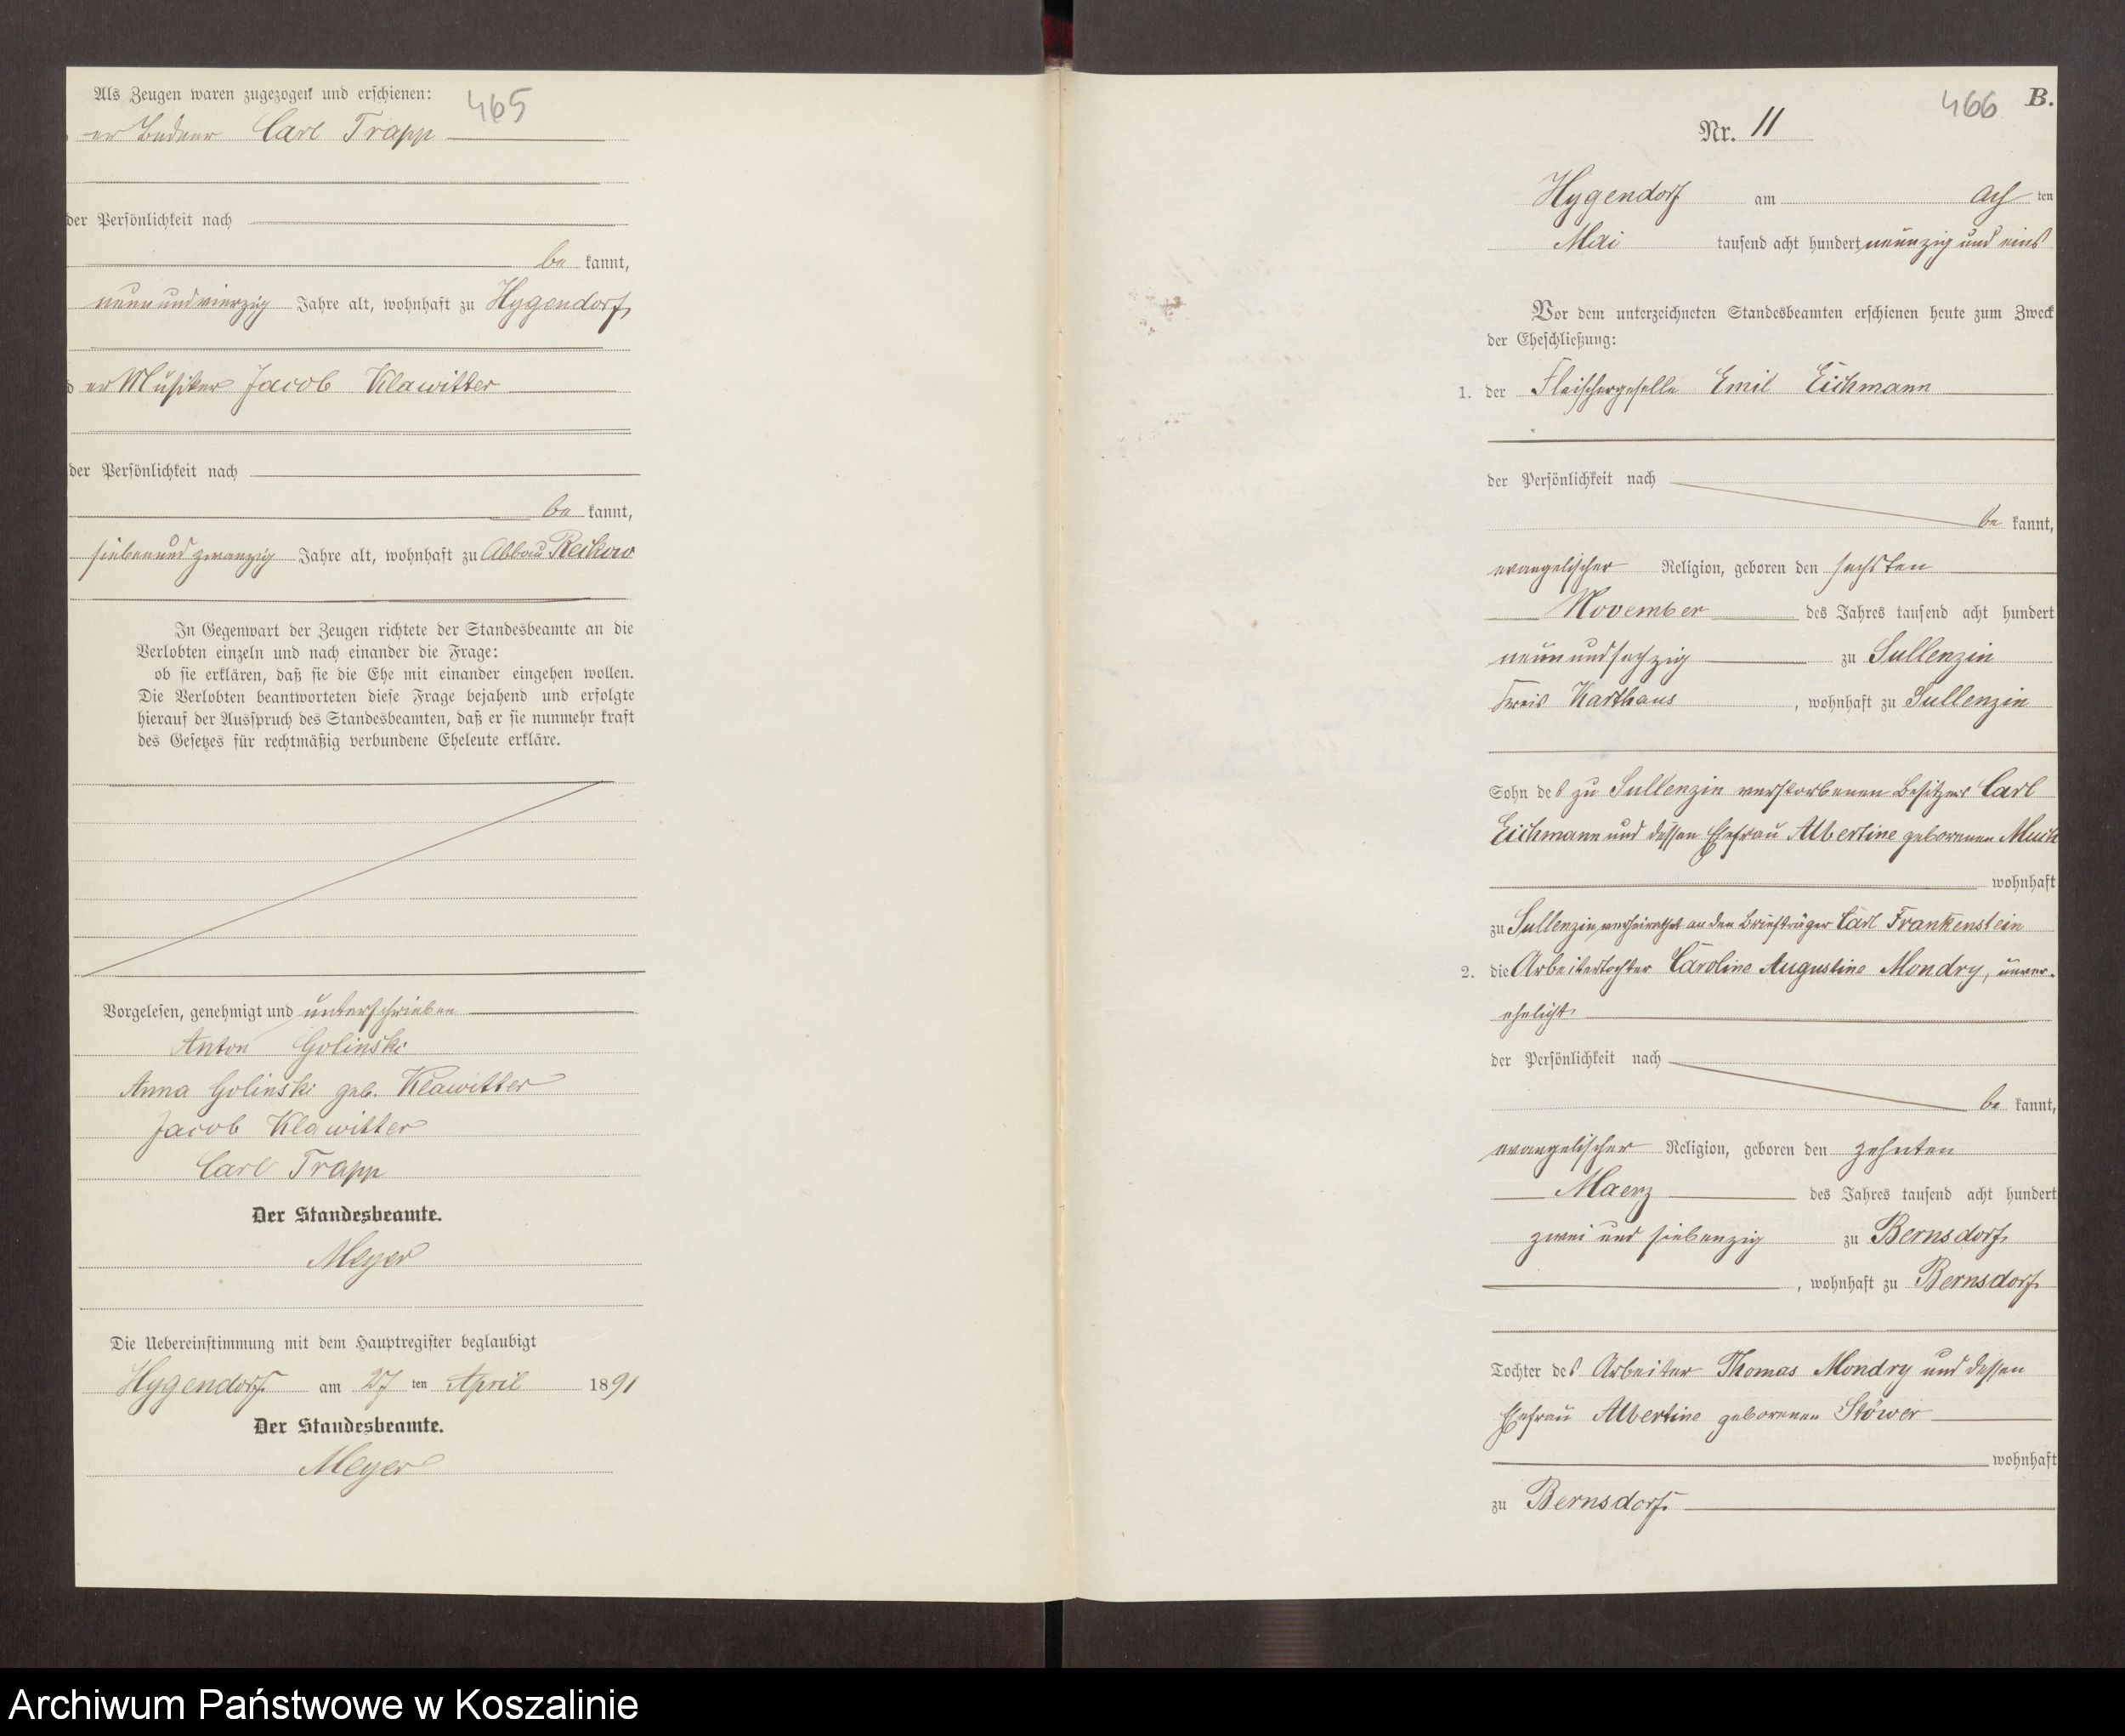 465
Als Zeugen waren zugezogen und erschienen:
er Büdner Carl Trapp
der Persönlichkeit nach
be kannt,
neun und vierzig Jahre alt, wohnhaft zu Hygendorf,
er Musiker Jacob Klawitter
der Persönlichkeit nach
be kannt,
sieben und zwanzig Jahre alt, wohnhaft zu Abbau Reikow
In Gegenwart der Zeugen richtete der Standesbeamte an die
Verlobten einzeln und nach einander die Frage:
ob sie erklären, daß sie die Ehe mit einander eingehen wollen.
Die Verlobten beantworteten diese Frage bejahend und erfolgte
hierauf der Ausspruch des Standesbeamten, daß er sie nunmehr kraft
des Gesetzes für rechtmäßig verbundene Eheleute erkläre.
Vorgelesen, genehmigt und unterschrieben
Anton Golinski
Anna Golinski geb. Klawitter
Jacob Klawitter
Carl Trapp
Der Standesbeamte.
Meyer
Die Uebereinstimmung mit dem Hauptregister beglaubigt
Hygendorf am 27 ten April 1891
Der Standesbeamte.
Meyer
466 B.
Nr. 11
Hygendorf am ach ten
Mai tausend acht hundert neunzig und eins
Vor dem unterzeichneten Standesbeamten erschienen heute zum Zweck
der Eheschließung:
1. der Fleischergeselle Emil Eichmann
der Persönlichkeit nach
be kannt,
evangelischer Religion, geboren den sechsten
November des Jahres tausend acht hundert
neun und sechzig zu Sullenzin
Kreis Karthaus, wohnhaft zu Sullenzin
Sohn des zu Sullenzin verstorbenen Besitzers Carl
Eichmann und dessen Ehefrau Albertine geborenen Much
wohnhaft
zu Sullenzin, verheirathet an den Briefträger Carl Frankenstein
2. die Arbeitertochter Caroline Augustine Mondry, unver-
ehelicht.
der Persönlichkeit nach
be kannt,
evangelischer Religion, geboren den zehnten
Maerz des Jahres tausend acht hundert
zwei und siebenzig zu Bernsdorf
, wohnhaft zu Bernsdorf
Tochter des Arbeiter Thomas Mondry und dessen
Ehefrau Albertine geborenen Stöwer
wohnhaft
zu Bernsdorf.
Archiwum Państwowe w Koszalinie